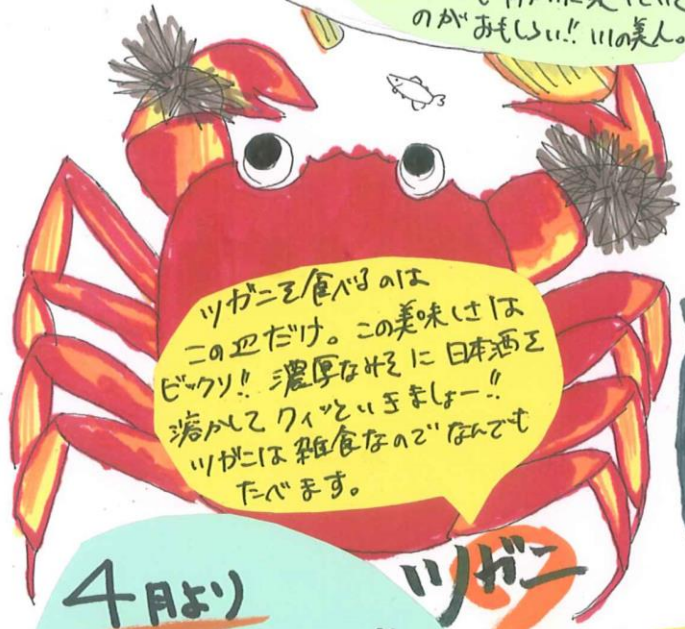 のがおもしろい!! 川の美人。
ツガニを食べるのは
この皿だけ。この美味しさは
ビックリ!! 濃厚なみそに日本酒を
溶かしてクィッといきましょー!!
ツガニは雑食なのでなんでも
たべます。
4月より
ツガニ